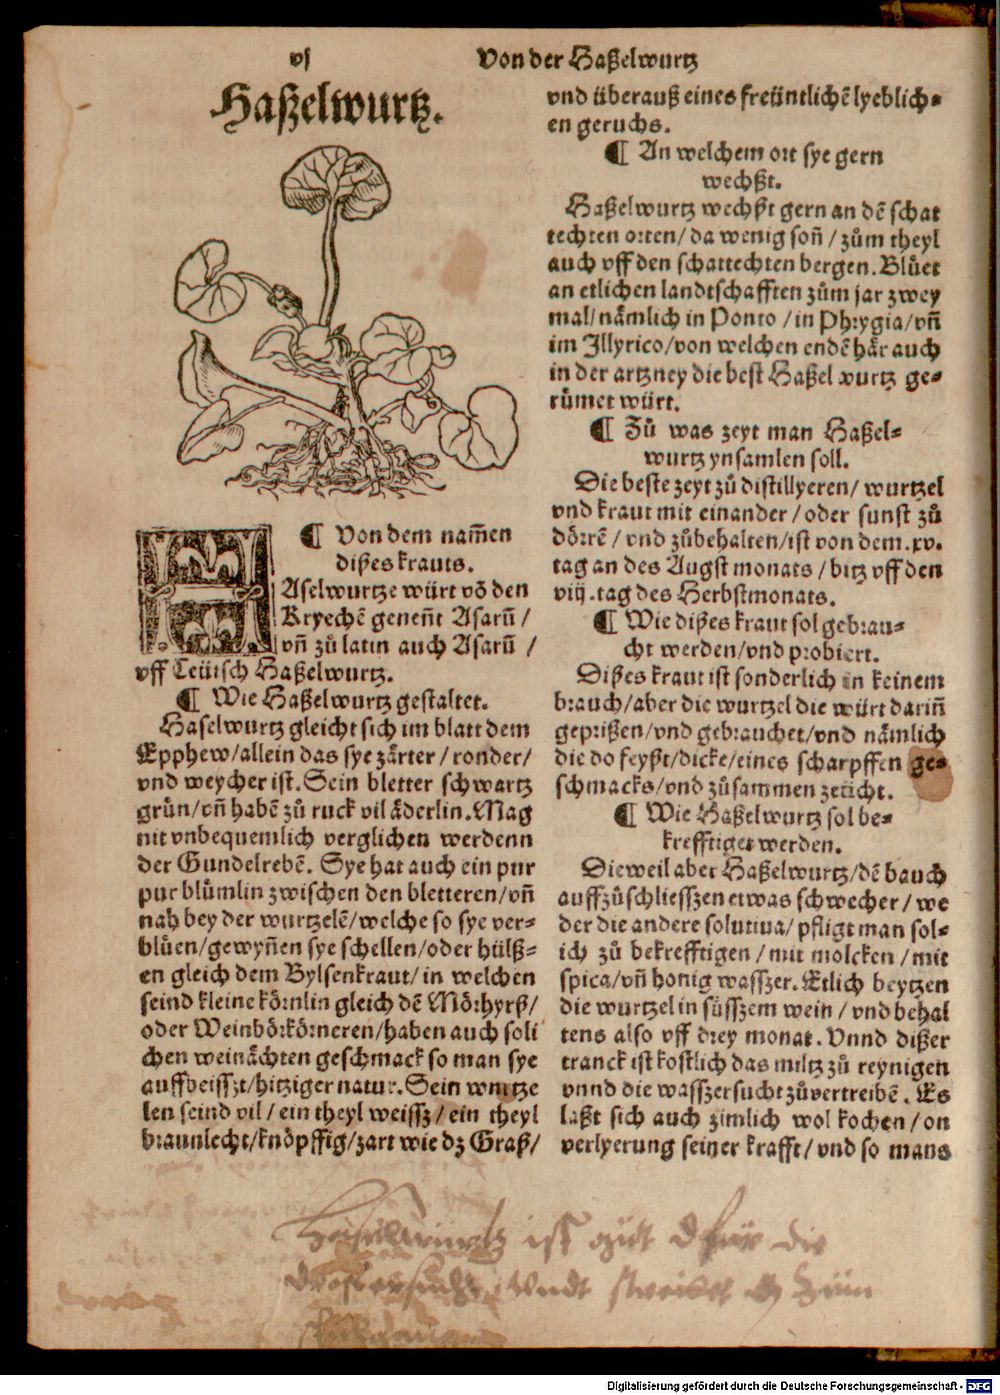 vj
Von der Haßelwurtz
Haßzelwurtz.
¶ Von dem nam̃en
dißes krauts.
HAselwurtze würt võ den
Kryechẽ geneñt Asarũ /
vñ zů latin auch Asarũ /
vff Teütsch Haßelwurtz.
¶ Wie Haßelwurtz gestaltet.
Haselwurtz gleicht sich im blatt dem
Epphew/allein das sye zärter / ronder/
vnd weycher ist. Sein bletter schwartz
grün/vñ habẽ zů ruck vil äderlin. Mag
nit vnbequemlich verglichen werdenn
der Gundelrebẽ. Sye hat auch ein pur
pur blümlin zwischen den bletteren/vñ
nah bey der wurtzelẽ/welche so sye ver⸗
blüen/gewyñen sye schellen/oder hülß⸗
en gleich dem Bylsenkraut/in welchen
seind kleine körnlin gleich dẽ Mörhyrß/
oder Weinbörkörneren/haben auch soli
chen weinächten geschmack so man sye
auffbeisszt/hitziger natur. Sein wurtze
len seind vil / ein theyl weissz/ein theyl
braunlecht/knöpffig/zart wie dz Graß/
vnd überauß eines freüntlichẽ lyeblich⸗
en geruchs.
¶ An welchem ort sye gern
wechßt.
Haßelwurtz wechßt gern an dẽ schat
techten orten/da wenig soñ / zům theyl
auch vff den schattechten bergen. Blüet
an etlichen landtschafften zům jar zwey
mal/nämlich in Ponto /in Phrygia/vñ
im Illyrico/von welchen endẽ här auch
in der artzney die best Haßelwurtz ge⸗
rümet würt.
¶ Zů was zeyt man Haßel⸗
wurtz ynsamlen soll.
Die beste zeyt zů distillyeren/ wurtzel
vnd kraut mit einander / oder sunst zů
dörrẽ / vnd zůbehalten/ist von dem .xv.
tag an des Augst monats / bitz vff den
viij .tag des Herbstmonats.
¶ Wie dißes kraut sol gebrau⸗
cht werden/vnd probiert.
Dißes kraut ist sonderlich in keinem
brauch/aber die wurtzel die würt dariñ
geprißen/vnd gebrauchet/vnd nämlich
die do feyßt/dicke/eines scharpffen ge⸗
schmacks/vnd zůsammen zeücht.
¶ Wie Haßelwurtz sol be⸗
krefftiget werden.
Dieweil aber Haßelwurtz/dẽ bauch
auffzůschliesszen etwas schwecher / we
der die andere solutiua/ pfligt man sol⸗
ich zů bekrefftigen / mit molcken /mit
spica/vñ honig wasszer. Etlich beytzen
die wurtzel in süsszem wein / vnd behal
tens also vff drey monat. Vnnd dißer
tranck ist kostlich das miltz zů reynigen
vnnd die wasszersucht zůvertreibẽ. Es
laßt sich auch zimlich wol kochen / on
verlyerung seiner krafft/vnd so mans
Haselwurtz ist gůt für die
wassersucht vndt
Digitalisierung gefördert durch die Deutsche Forschungsgemeinschaft - DFG